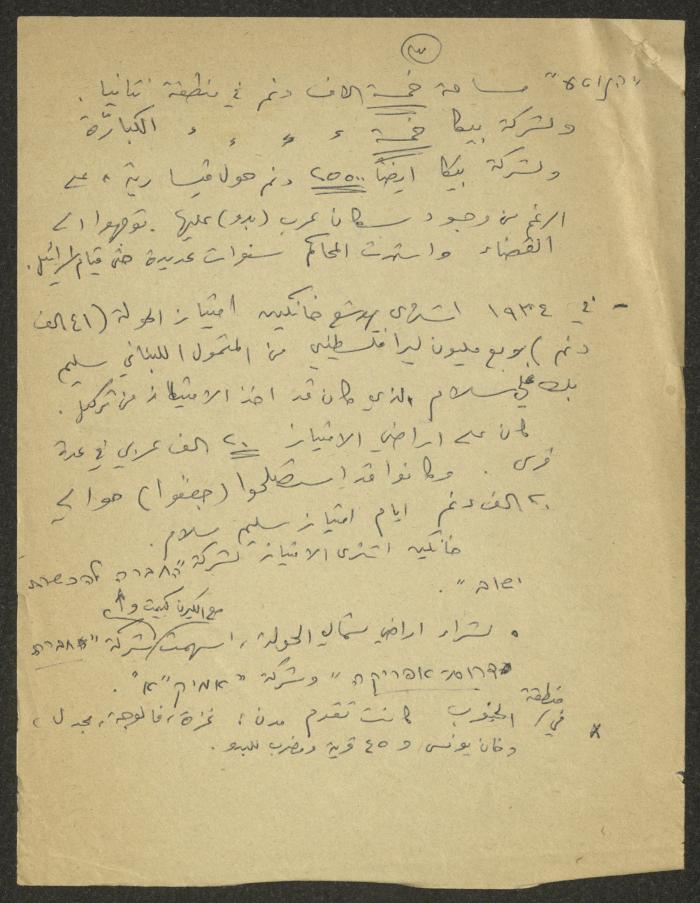 ٣
مساحة خمسة الاف دنم في منطقة نتانيا.
ولشركة بيكا خمسة ء ء ء ء الكبارّة
ولشركة بيكا ايضاً ٢٥٥٠٠ دنم حول قيسارية، على
الرغم من وجود سكان عرب (بدو) عليها. توجهوا الى
القضاء واستمرت المحاكم سنوات عديدة حتى قيام اسرائيل.
- في ١٩٣٤ اشترى يهوشع خانكين امتياز الحولة (٤١ الف
دنم) بربع مليون ليرا فلسطيني من المتمول اللبناني سليم
بك علي سلام الذي كان قد اخذ الامتياز من تركيا.
كان على اراضي الامتياز ٢٠ الف عربي في عدة
قرى. وكانوا قد استصلحوا (جففوا) حوالي
٢٠ الف دنم ايام امتياز سليم سلام.
خانكين اشترى الامتياز لشركة "חברה להכשרת
ישוב".
مع الكيرن كييمت
• لشراء اراضي شمالي الحولة، اسهمت شركة "חברת
דרום אפריקה" وشركة "אמיקא".
* في منطقة الجنوب كانت تقدم مدن: غزة، فالوجة، مجدل،
وخان يونس و ٤٥ قرية ومضرب للبدو.